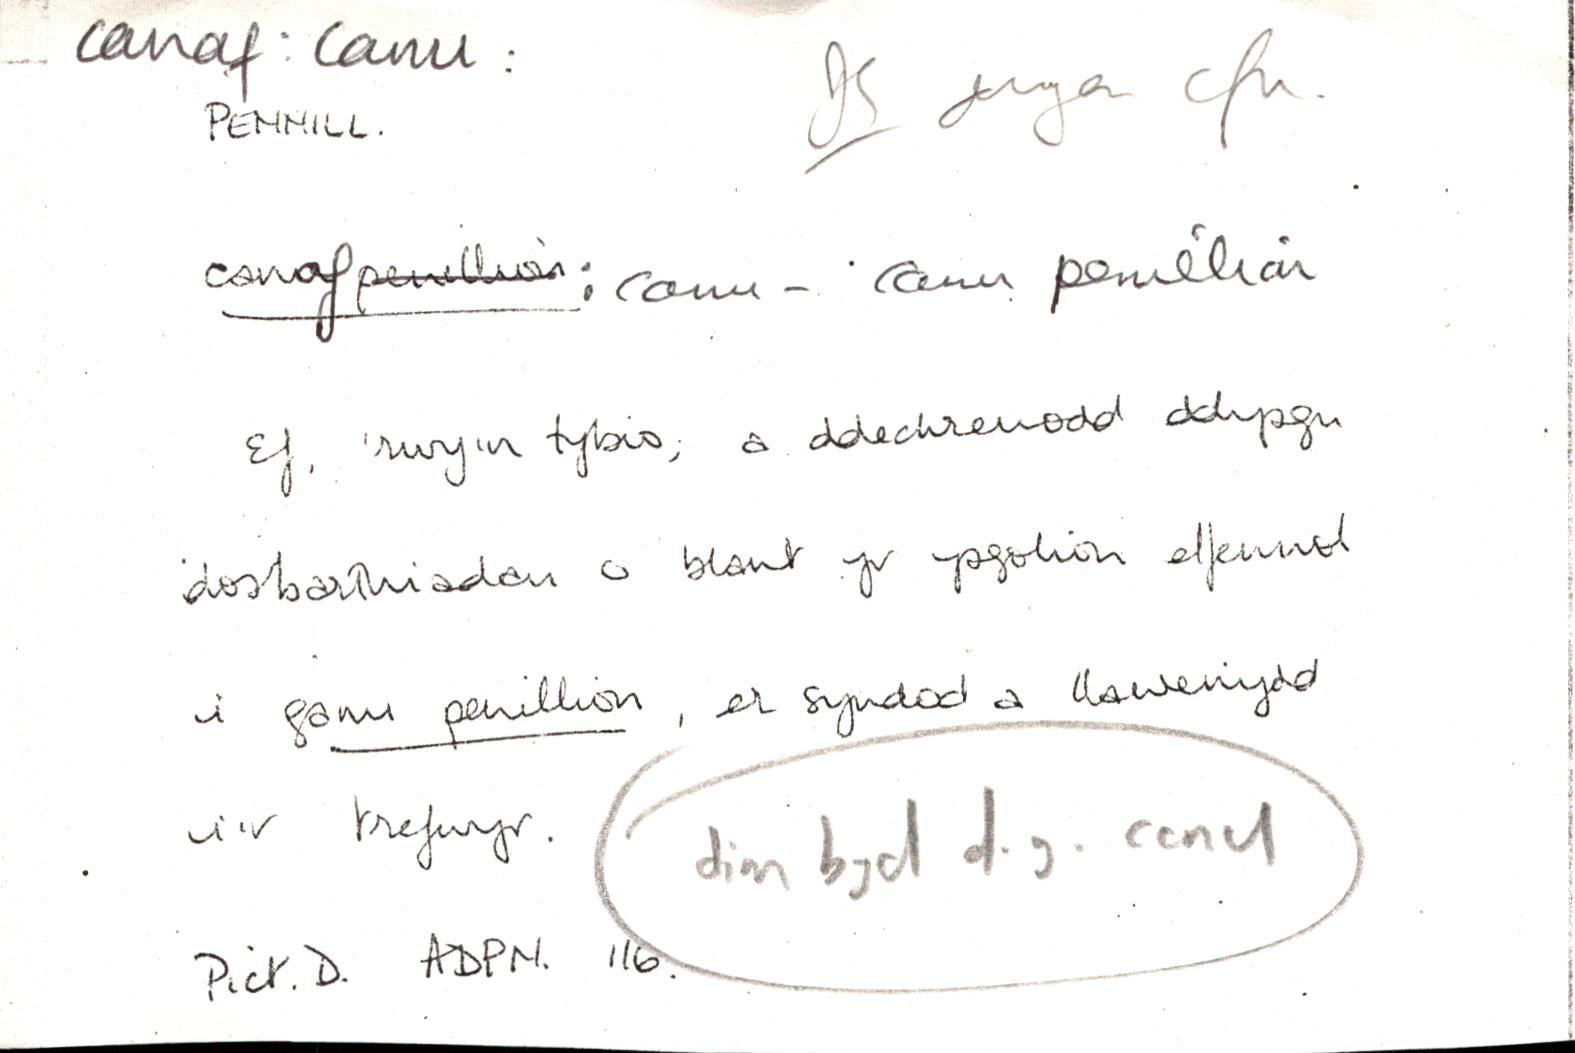 canaf: canu:
PENNILL.
canaf penillion: canu - canu penillion
Ef, 'rwy'n tybio, a ddechreuodd ddysgu
dosbarthiadau o blant yr ysgolion elfennol
i ganu penillion, er syndod a llawenydd
i'r trefwyr.
dim byd d.g. canu
Pict. D. ADPN. 116.